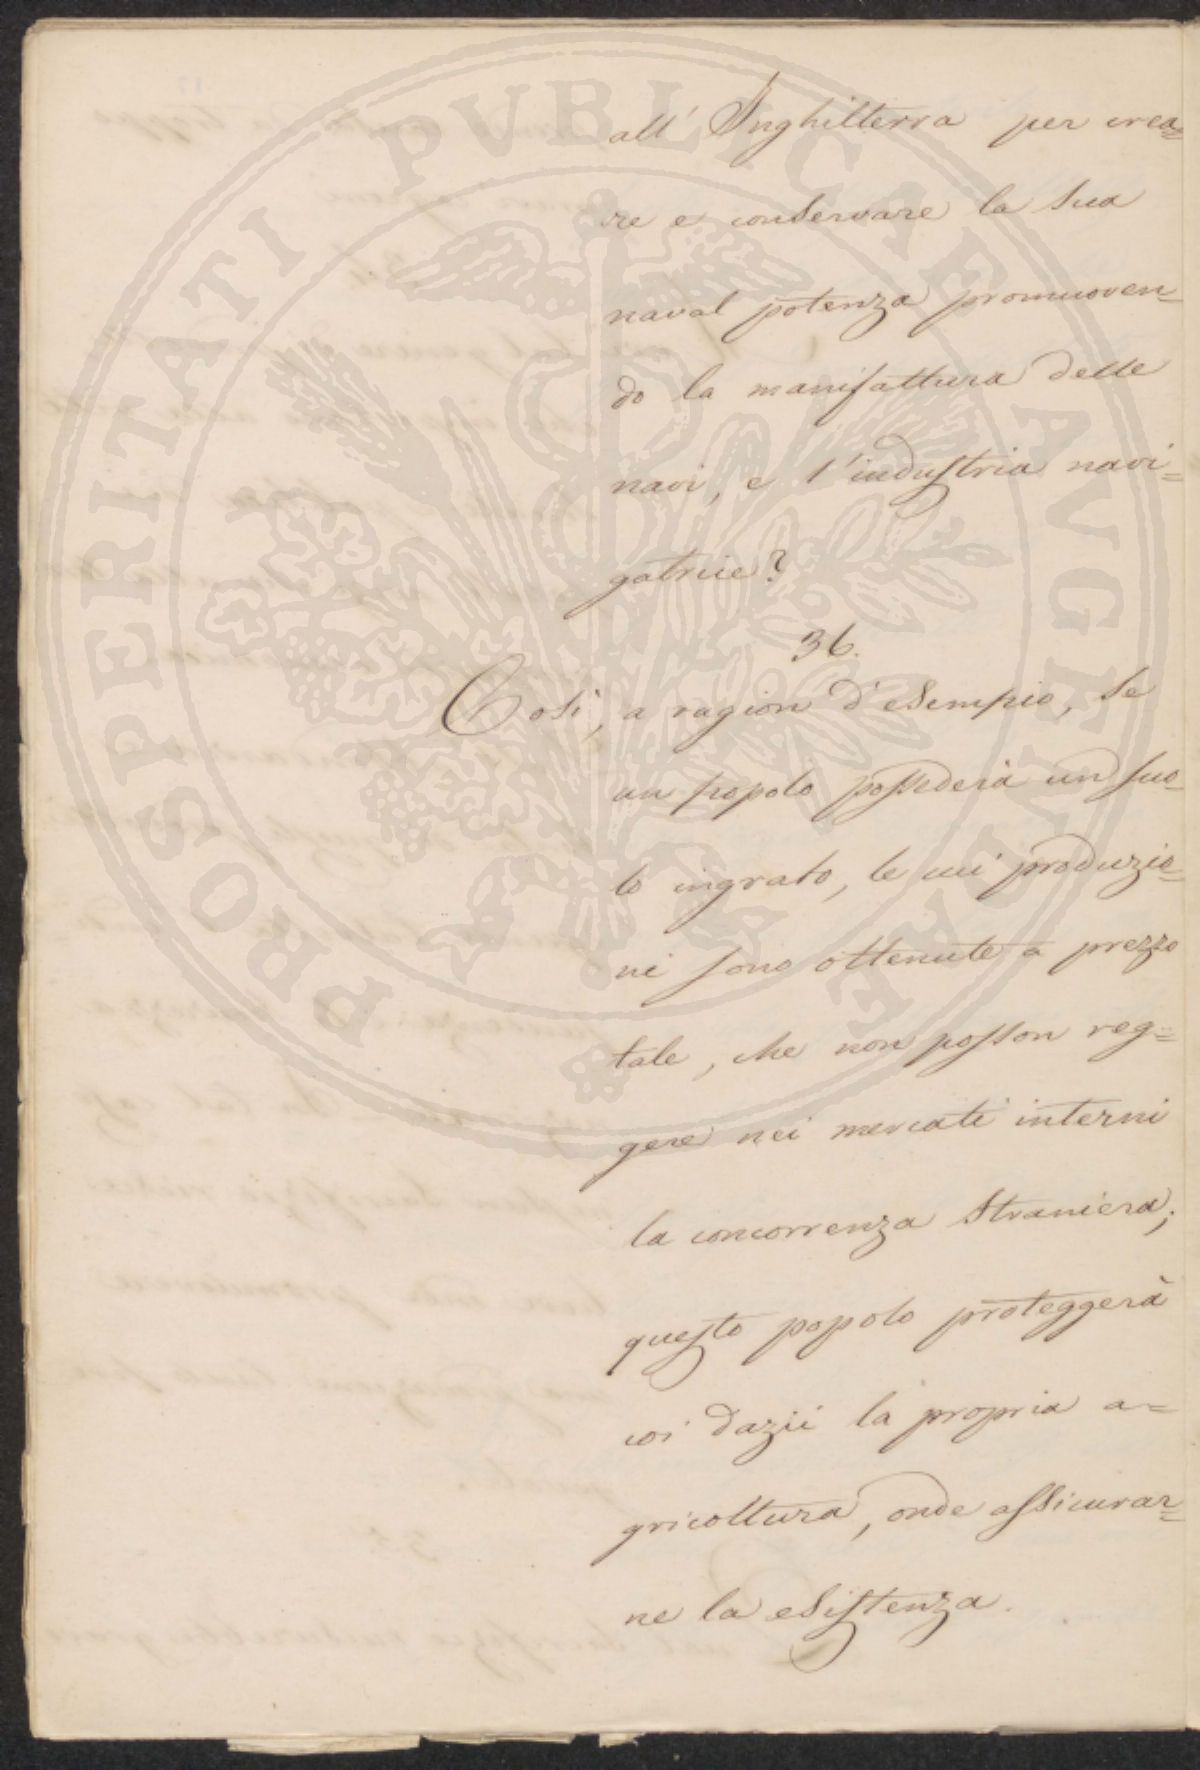 all' Inghilterra per crea=
re e conservare la sua
naval potenza promuoven=
do la manifattura delle
navi, e l'industria navi=
gatrice?
36.
Così, a ragion d'esempio, se
un popolo possederà un suo=
lo ingrato, le cui produzio=
ni sono ottenute a prezzo
tale, che non posson reg=
gere nei mercati interni
la concorrenza straniera;
questo popolo proteggerà
coi dazii la propria a=
gricoltura, onde assicurar=
ne la esistenza.
PROSPERITATI PVBLICAE AVGENDAE